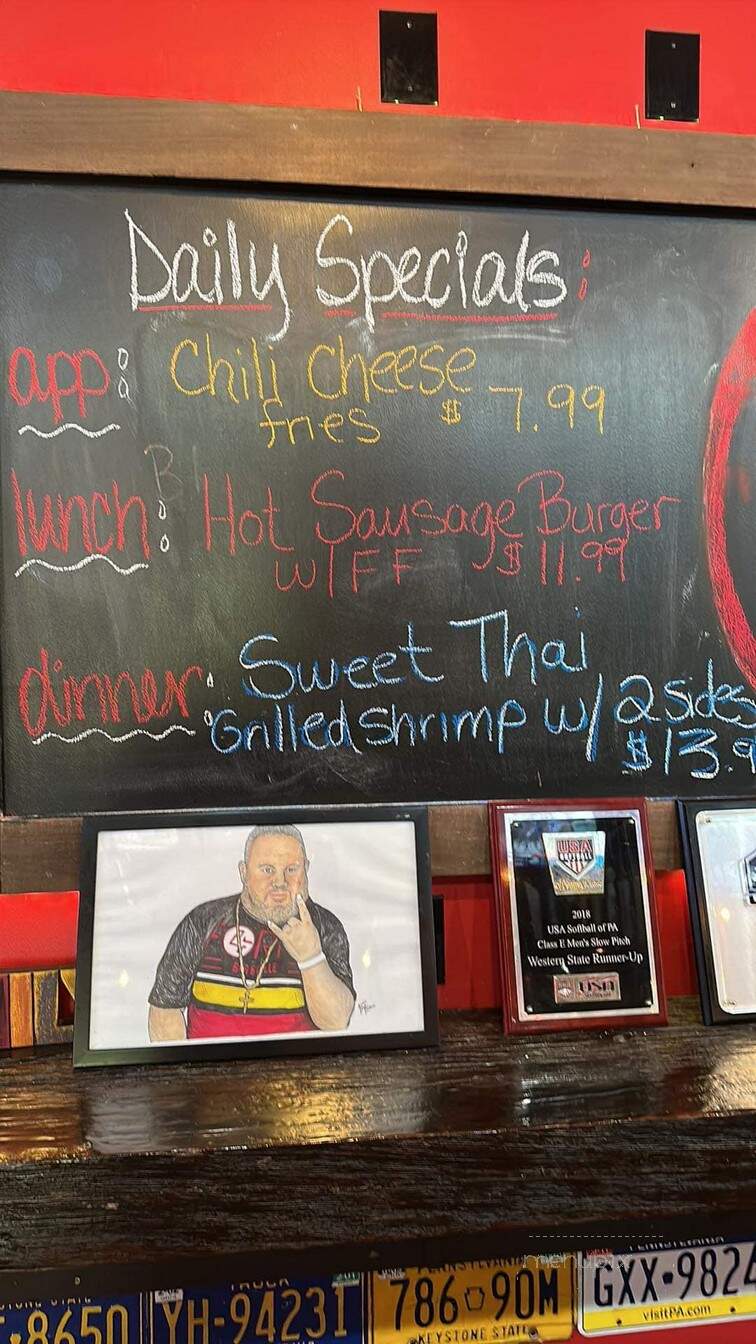 Daily Specials:
app: Chili Cheese
fries $7.99
lunch: Hot Sausage Burger
W/FF $11.99
dinner: Sweet Thai
Grilled shrimp w/ 2 sides
$13.9
USA
2018
USA Softball of PA
Class E Men's Slow Pitch
Western State Runner-Up
USA
menupix
8650
TRUCK
YH-94231
PENNSYLVANIA
786 90M
KEYSTONE STATE
PENNSYLVANIA
GXX•9826
visitPA.com